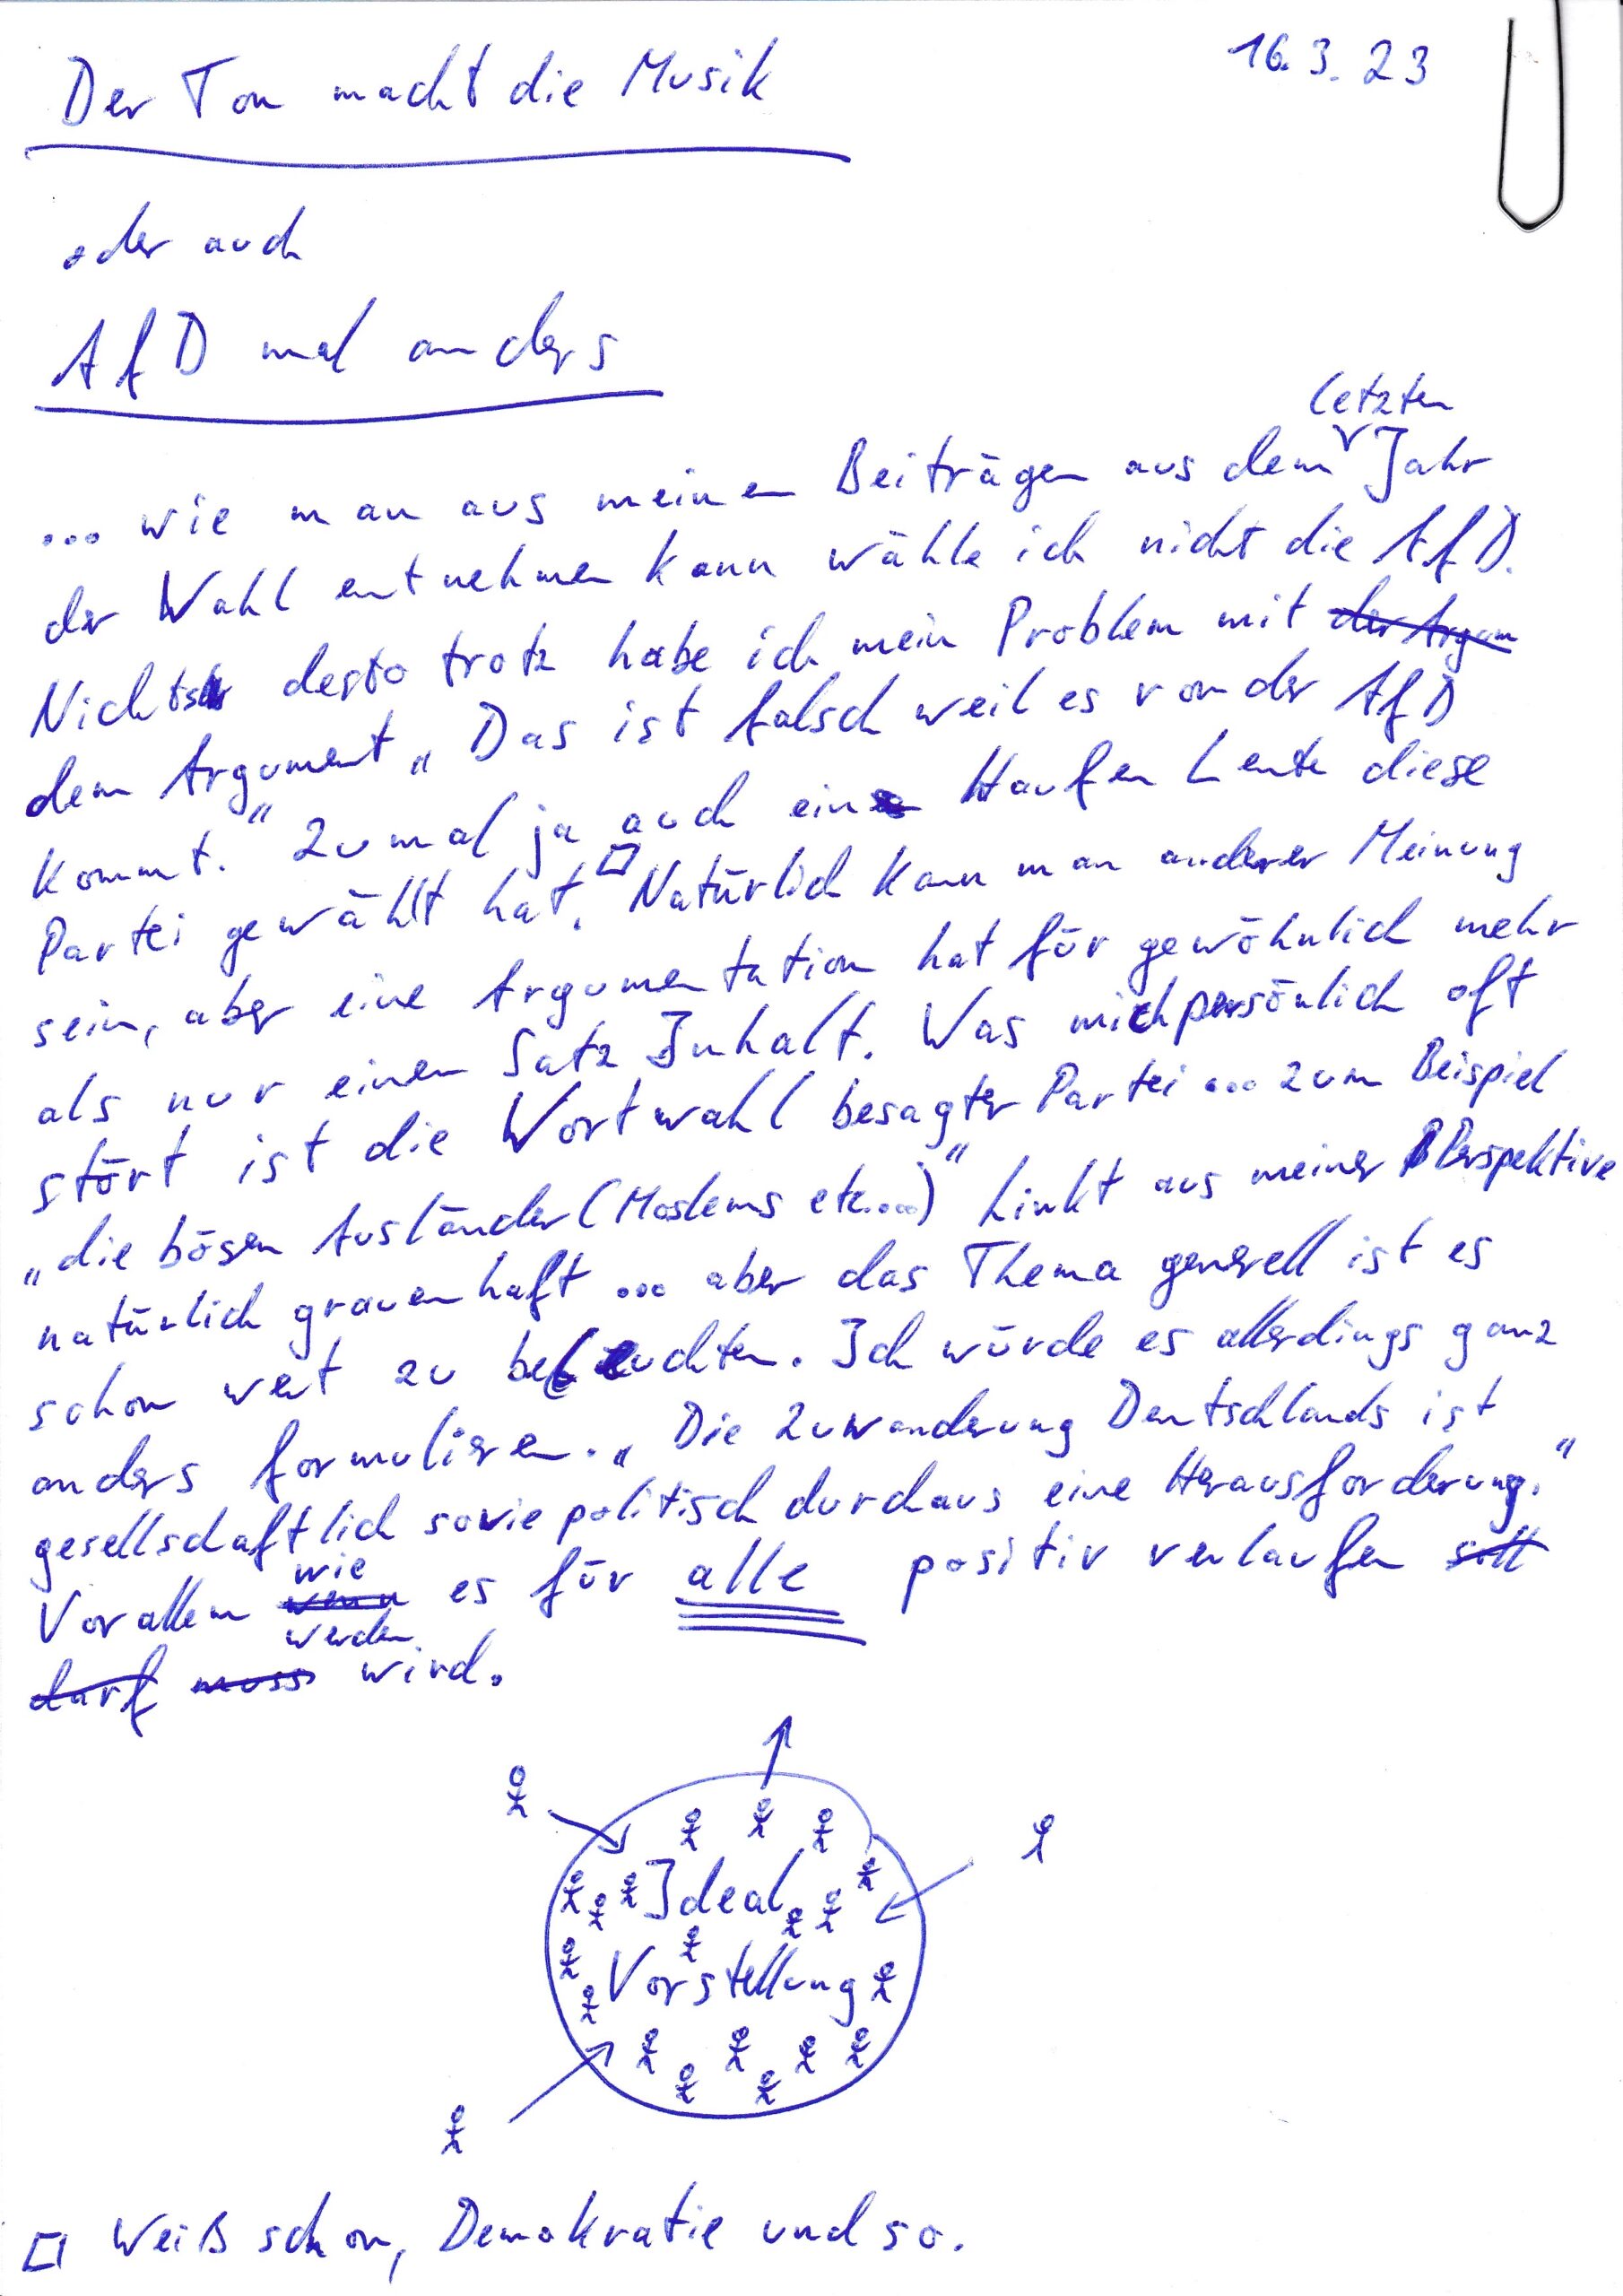 16.3.23
Der Ton macht die Musik
oder auch
AfD mal anders
letzten
... wie man aus meinen Beiträgen aus dem Jahr
der Wahl entnehmen kann wähle ich nicht die AfD.
Nichts desto trotz habe ich mein Problem mit der Argum
dem Argument „Das ist falsch weil es von der AfD
kommt." Zumal ja auch ein Haufen Leute diese
Partei gewählt hat.□ Natürlich kann man anderer Meinung
sein, aber eine Argumentation hat für gewöhnlich mehr
als nur einen Satz Inhalt. Was mich persönlich oft
stört ist die Wortwahl besagter Partei ... zum Beispiel
„die bösen Ausländer (Moslems etc....)" hinkt aus meiner Perspektive
natürlich grauenhaft ... aber das Thema generell ist es
schon wert zu beleuchten. Ich würde es allerdings ganz
anders formulieren. „Die Zuwanderung Deutschlands ist
gesellschaftlich sowie politisch durchaus eine Herausforderung."
wie
Vorallem wenn es für alle positiv verlaufen soll
werden
darf muss wird.
Ideal
Vorstellung
□ Weiß schon, Demokratie und so.